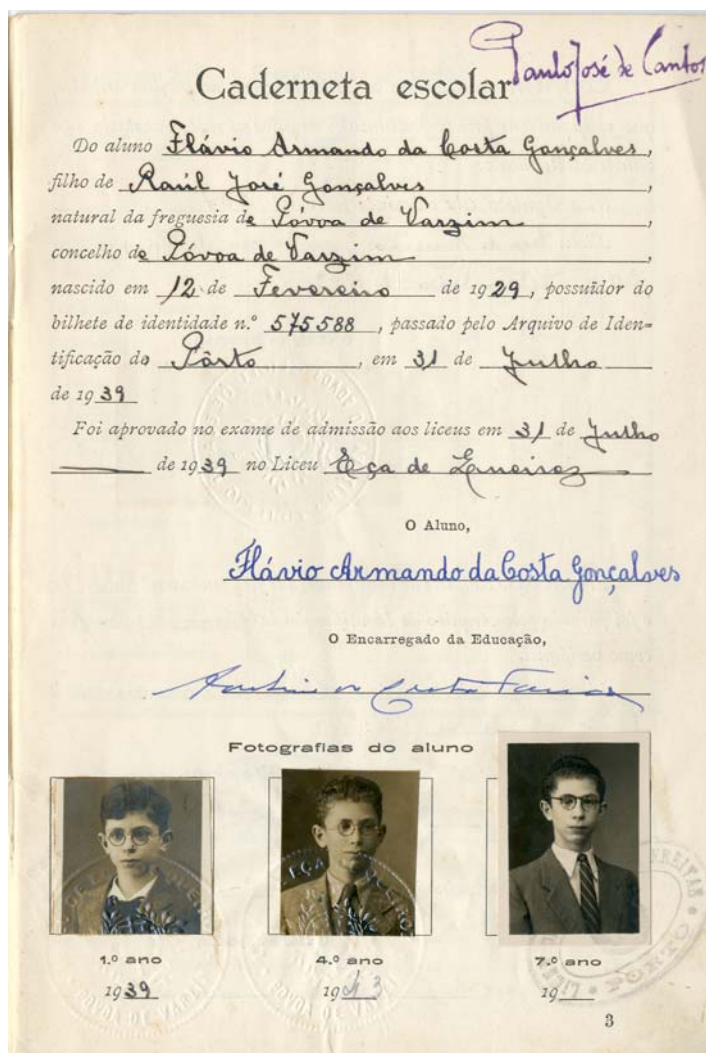 Paulo José de Cantos
Caderneta escolar
Do aluno Flávio Armando da Costa Gonçalves,
filho de Raúl José Gonçalves,
natural da freguesia de Póvoa de Varzim,
concelho de Póvoa de Varzim,
nascido em 12 de Fevereiro de 1929, possuïdor do
bilhete de identidade n.º 575588, passado pelo Arquivo de Iden=
tificação do Pôrto, em 31 de Julho
de 1939
Foi aprovado no exame de admissão aos liceus em 31 de Julho
de 1939 no Liceu Eça de Queiroz
O Aluno,
Flávio Armando da Costa Gonçalves
O Encarregado da Educação,
Costa
Fotografias do aluno
1.º ano 4.º ano 7.º ano
1939 1943 19
PORTO
PÓVOA DE VARZIM
3